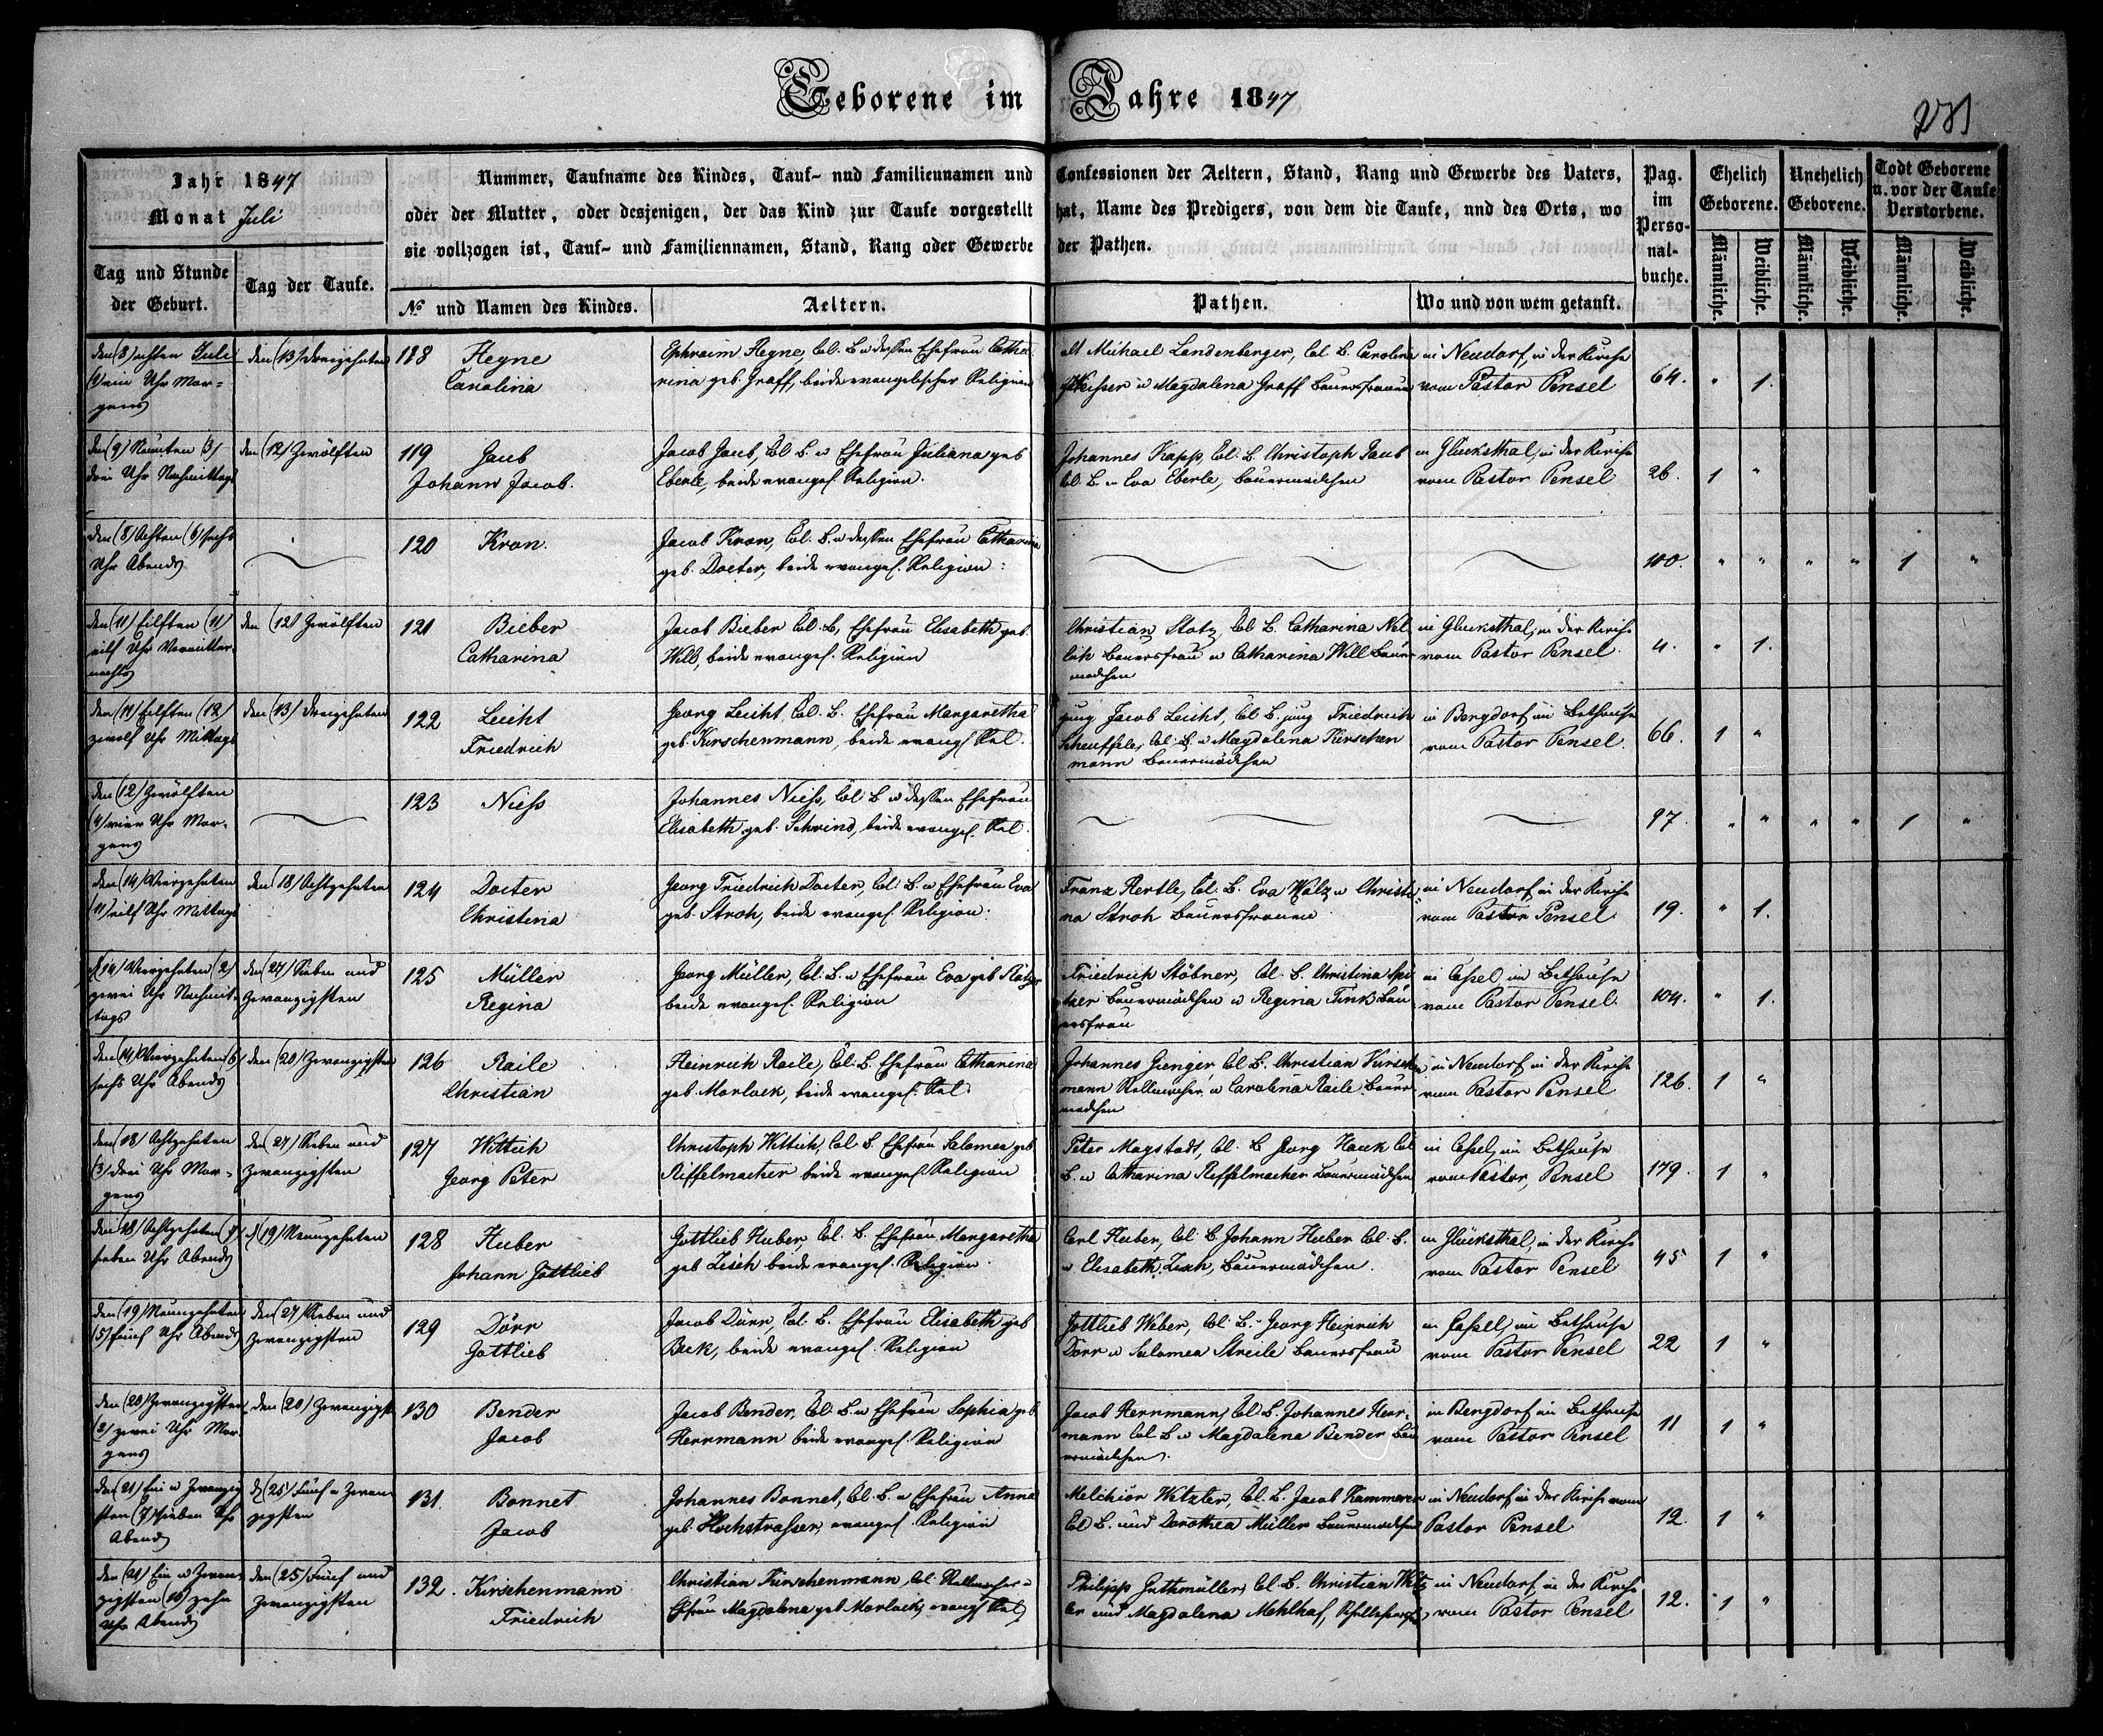 Geborene im Jahre 1847
281
Jahr 1847
Monat Juli
Tag und Stunde
der Geburt.
Tag der Taufe.
Nummer, Taufname des Kindes, Tauf- nud Familiennamen und Confessionen der Aeltern, Stand, Rang und Gewerbe des Vaters,
oder der Mutter, oder desjenigen, der das Kind zur Taufe vorgestellt hat, Name des Predigers, von dem die Taufe, und des Orts, wo
sie vollzogen ist, Tauf- und Familiennamen, Stand, Rang oder Gewerbe der Pathen.
No und Namen des Kindes.
Aeltern.
Pathen.
Wo und von wem getauft.
Pag.
im
Perso-
nal-
buche.
Ehelich
Geborene.
Unehelich
Geborene.
Todt Geborene
u. vor der Taufe
Verstorbene.
Männliche.
Weibliche.
Männliche.
Weibliche.
Männliche.
Weibliche.
den (8) achten Juli
(1) ein Uhr Mor=
gens
den (13) Dreizehnten
118 Heyne
Carolina
Ephraim Heyne, Col. B. u dessen Ehefrau Catha
rina geb. Graff, beide evangelischer Religion
alt Michael Landenberger, Col. B. Carolina
u Magdalena Graff Bauersfrauen
in Neudorf, in der Kirche
vom Pastor Pensel
64. " 1.
den (9) Neunten (3)
drei Uhr Nachmittags
den (12) Zwölften
119 Jaub
Johann Jacob.
Jacob Jaub, Col. B. u Ehefrau Juliana geb
Eberle, beide evangel. Religion.
Johannes Kapp, Col. B. Christoph Jaub
Col. B. u Eva Eberle, Bauermädchen
in Glücksthal, in der Kirche
vom Pastor Pensel
26. 1 "
den (8) Achten (6) sechs
Uhr Abends
120 Kron.
Jacob Kron, Col. B. u dessen Ehefrau Catharina
geb. Docter, beide evangel. Religion:
100. " " " " 1 "
den (11) Eilften (11)
eilf Uhr Vormitter
nachts
den (12) Zwölften
121 Bieber
Catharina
Jacob Bieber Col. B, Ehefrau Elisabeth geb.
Will, beide evangel. Religion
Christian Stotz, Col. B. Catharina Nel
lich Bauersfrau u Catharina Will Bauer
mädchen
in Glücksthal, in der Kirche
vom Pastor Pensel.
4. " 1.
den (11) Eilften (12)
zwölf Uhr Mittags
den (13) Dreizehnten
122 Leicht
Friedrich
Georg Leicht, Col. B. Ehefrau Margaretha
geb. Kirschenmann, beide evangel Rel.
jung Jacob Leicht, Col. B. jung Friedrich
Scheuffele, Col. B. u Magdalena Kirschen
mann Bauermädchen
in Bergdorf im Bethause
vom Pastor Pensel.
66. 1 "
den (12) Zwölften
(4) vier Uhr Mor-
gens
123 Niess
Johannes Niess, Col B u dessen Ehefrau
Elisabeth geb. Schwind, beide evangel. Rel.
97. " " " " 1 "
den (14) Vierzehnten
(11) eilf Uhr Mittags
den (18) Achtzehnten
124 Docter
Christina
Georg Friedrich Docter, Col. B. u Ehefrau Eva
geb. Stroh, beide evangel. Religion:
Franz Hertle, Col. B. Eva Wolz u Christi
na Stroh Bauersfrauen
in Neudorf in der Kirche
vom Pastor Pensel
19. " 1.
d (14) Vierzehnten (2)
zwei Uhr Nachmit-
tags
den (27) Sieben und
Zwanzigsten
125 Müller
Regina
Georg Müller, Col. B. u Ehefrau Eva geb
beide evangel. Religion
Friedrich Stöbner, Col. B. Christina Spi
tzer Bauermädchen u Regina Fink Bau
ersfrau
in Cassel im Bethause
vom Pastor Pensel.
104. " 1.
den (14) Vierzehnten (6)
sechs Uhr Abends
den (20) Zwanzigsten
126 Raile
Christian
Heinrich Raile, Col. B. Ehefrau Catharina
geb. Morlock, beide evangel. Rel.
Johannes Gienger Col B. Christian Kirschen
mann u Carolina Raile Bauer
mädchen
in Neudorf in der Kirche
vom Pastor Pensel
126. 1 "
den (18) Achtzehnten
(3) drei Uhr Mor-
gens
den (27) Sieben und
Zwanzigsten
127 Wittich
Georg Peter
Christoph Wittich, Col B Ehefrau Salomea geb
Riffelmacher beide evangel. Religion
Peter Magstadt, Col. B Georg Hauk Col
B. u Catharina Riffelmacher Bauermädchen
in Cassel, im Bethause
vom Pastor, Pensel
179. 1 "
den (18) Achtzehnten (7)
sieben Uhr Abends
d (19) Neunzehnten
128 Huber
Johann Gottlieb
Gottlieb Huber Col. B. Ehefrau Margaretha
geb Zisch beide evangel. Religion.
Carl Huber, Col. B Johann Huber Col. B.
u Elisabeth Zisch, Bauermädchen.
in Glücksthal, in der Kirche
vom Pastor Pensel
45 1 "
den (19) Neunzehnten
(5) fünf Uhr Abends
den (27) Sieben und
zwanzigsten
129 Dörr
Gottlieb
Jacob Dörr, Col. B. Ehefrau Elisabeth geb
Beck, beide evangel. Religion
Gottlieb Weber, Col. B. Georg Heinrich
Dörr u Salomea Streile Bauersfrau
in Cassel, im Bethause
vom Pastor Pensel
22 1 "
den (20) Zwanzigsten
(2) zwei Uhr Mor
gens
den (20) Zwanzigst
130 Bender
Jacob
Jacob Bender, Col. B. u Ehefrau Sophia geb.
Herrmann beide evangel. Religion
Jacob Herrmann, Col. B. Johannes Herr-
mann Col. B. u Magdalena Bender Bau
ermädchen.
in Bergdorf im Bethause
vom Pastor Pensel
11 1 "
den (21) Ein u Zwanzig
sten (7) sieben Uhr
Abends
d (25) Fünf u Zwan
zigsten
131. Bonnet
Jacob
Johannes Bonnet, Col. B. u Ehefrau Anna
geb. Hochstrasser, evangel. Religion
Melchior Wetzler, Col. B. Jacob Kammerer
Col B. und Dorothea Müller Bauermädchen
in Neudorf, in der Kirche vom
Pastor Pensel
12. 1 "
den (21) Ein u Zwan-
zigsten (10) zehn
Uhr Abends
den (25) Fünf und
Zwanzigsten
132. Kirschenmann
Friedrich
Christian Kirschenmann, Col. u
Ehefrau Magdalena geb. Morlock, evangel Rel
Philipp Guthmüller, Col. B. Christian Wetz
ler und Magdalena Mehlhaf,
in Neudorf, in der Kirche
vom Pastor Pensel
12. 1 "